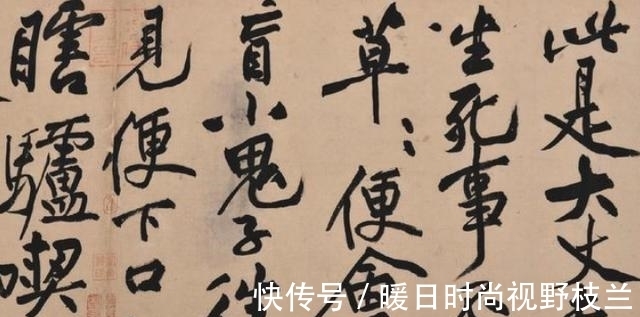 此是大丈
生死事
草〻便會
盲小鬼子往
見便下口
瞎驢喫
快传号 / 暖日时尚视野枝兰